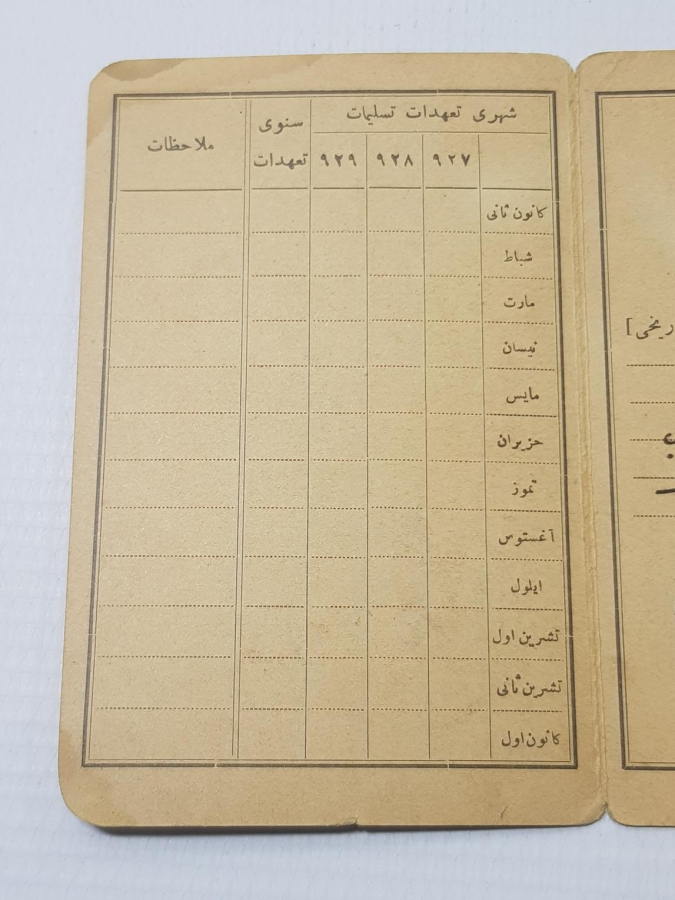 شهری تعهدات تسلیمات
سنوی تعهدات
ملاحظات
٩٢٧ ٩٢٨ ٩٢٩
كانون ثانی
شباط
مارت
نیسان
مایس
حزیران
تموز
آغستوس
ایلول
تشرین اول
تشرین ثانی
كانون اول
ریخی]